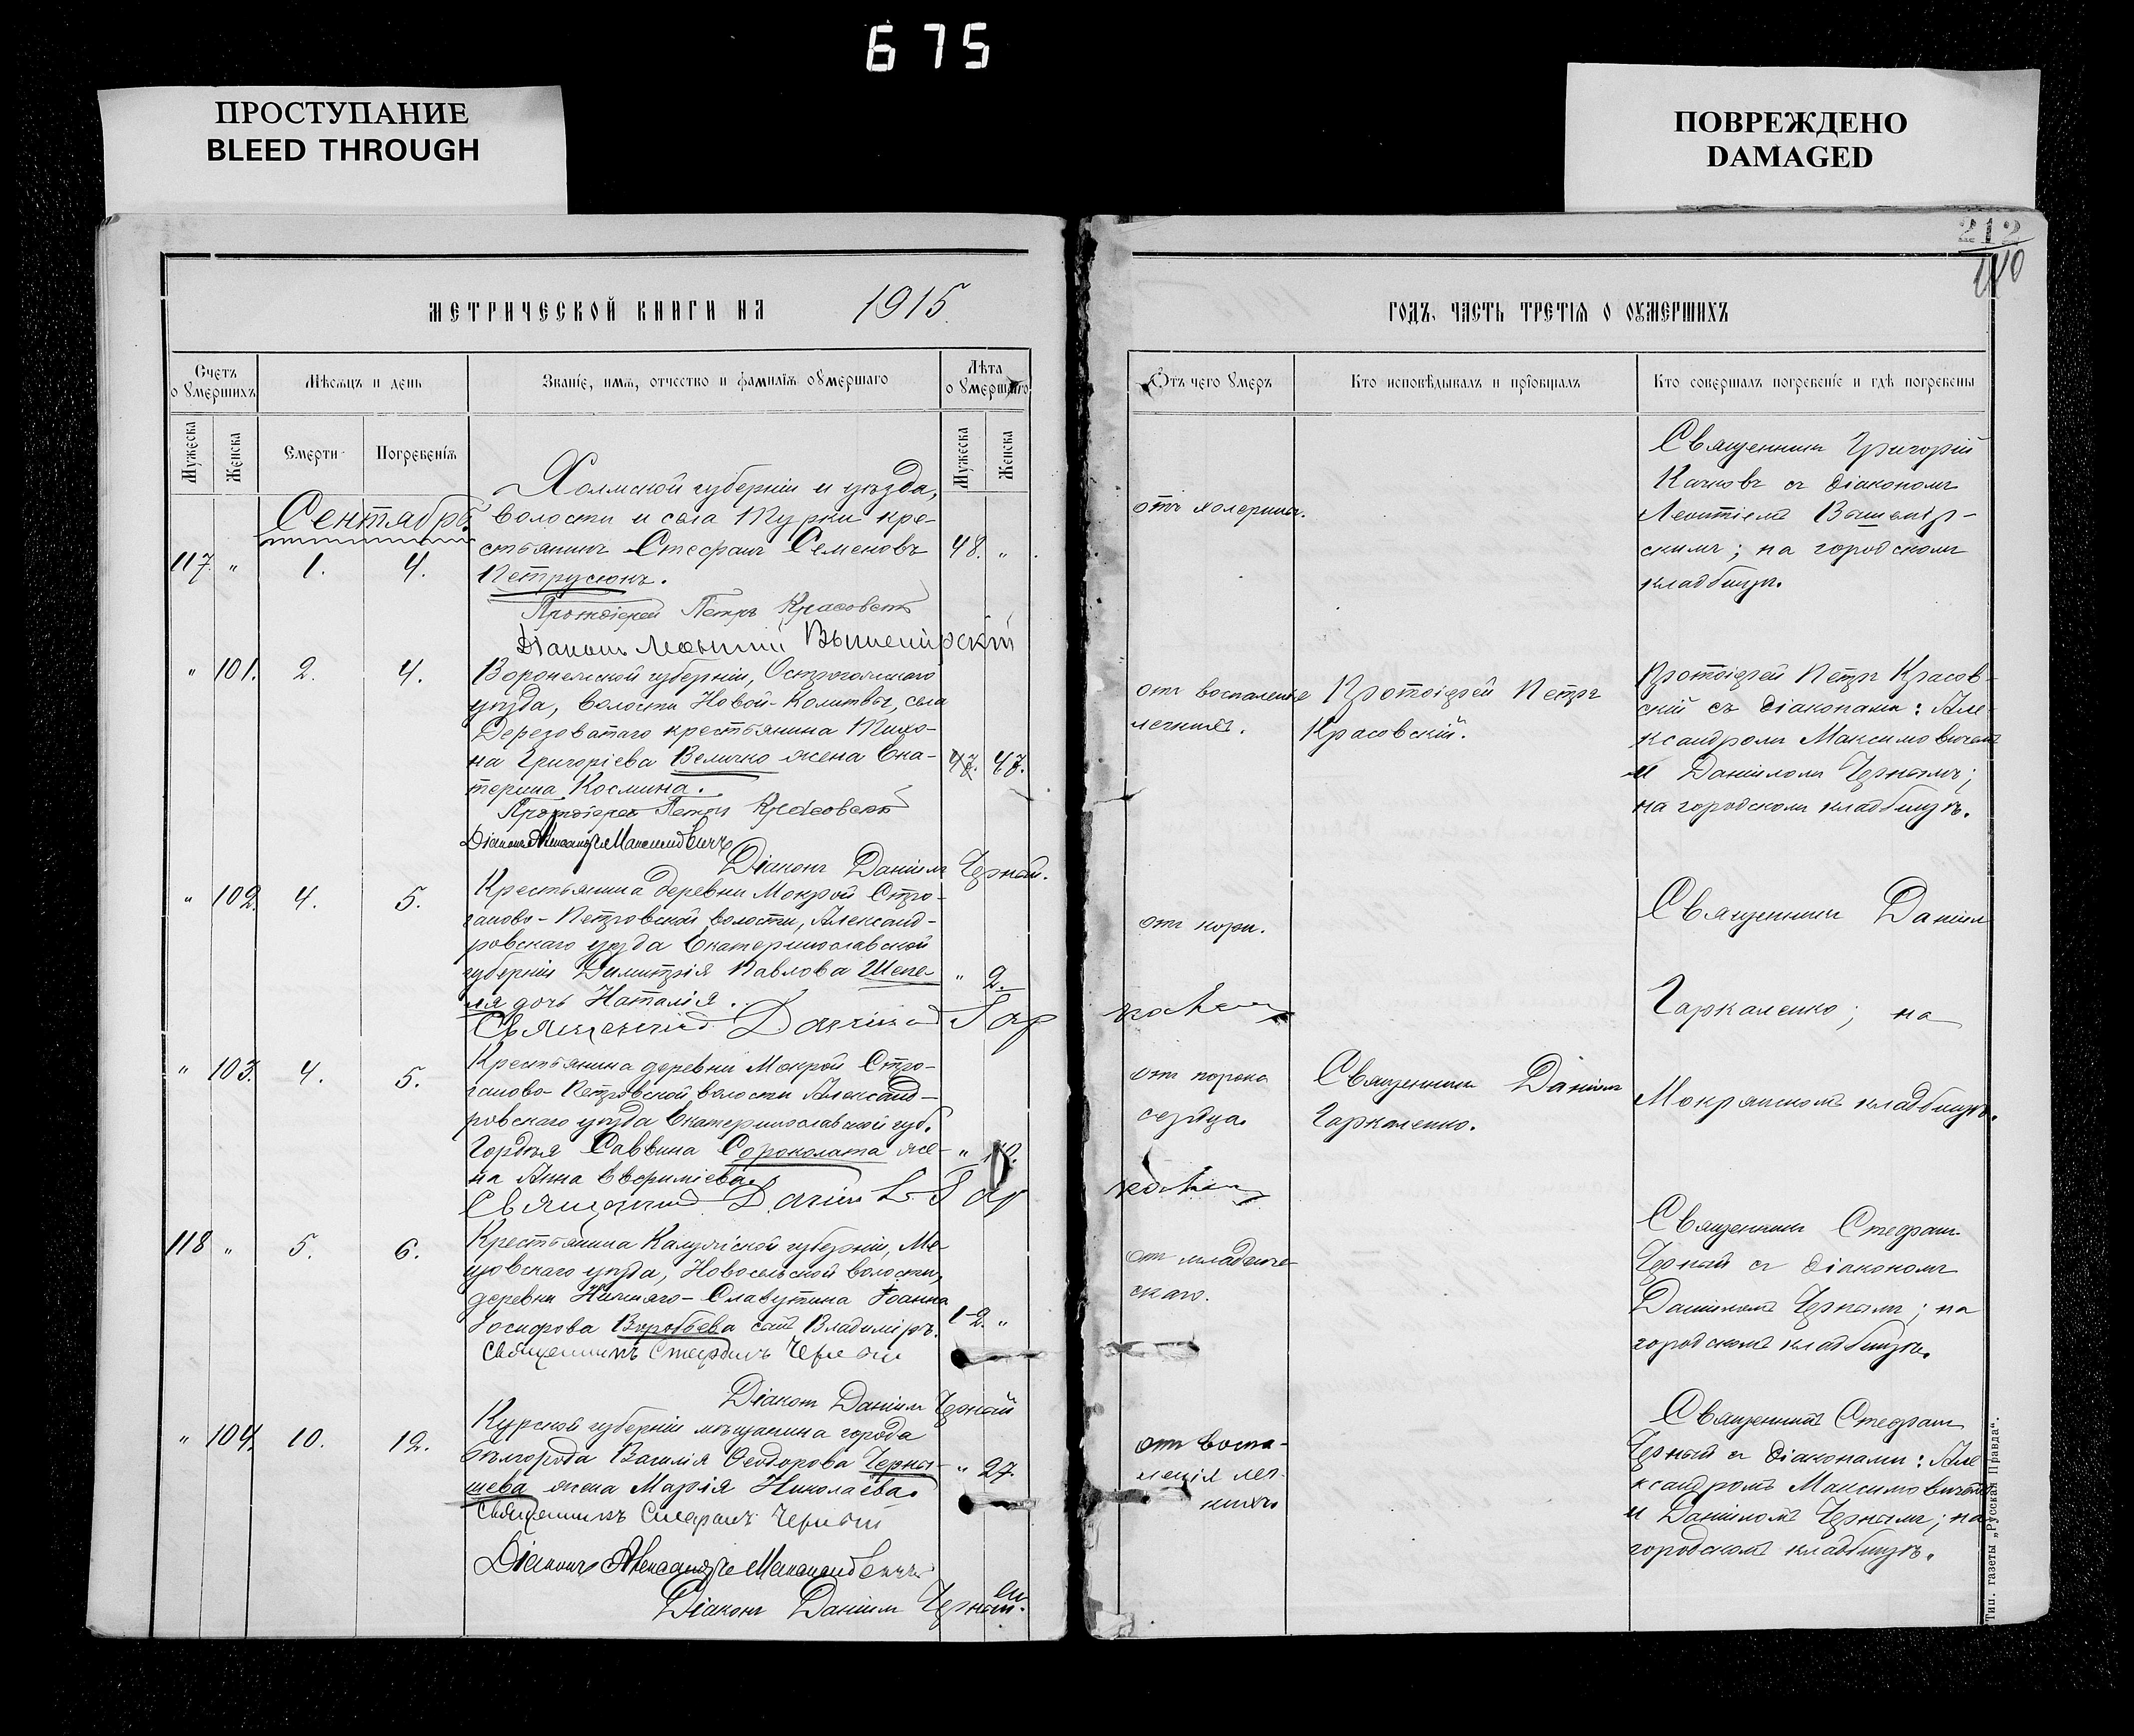 675
ПРОСТУПАНИЕ
BLEED THROUGH
ПОВРЕЖДЕНО
DAMAGED
212
МЕТРИЧЕСКОЙ КНИГИ НА 1915
Счетъ оумершихъ
Мѣсяцъ и день
Званіе, имя, отчество и фамилія оумершаго
Лѣта оумершаго
Мужеска
Женска
Смерти
Погребенія
Мужеска
Женска
Сентябрь.
Холмской губерніи и уѣзда,
волости и села Турки кре-
стьянинъ Стефанъ Семеновъ
117. " 1. 4. Петрусюкъ. 48. "
Протоіерей Петръ Красовскій
Діаконъ Леонтій Вышемірскій
" 101. 2. 4. Воронежской губерніи, Острогожскаго
уѣзда, волости Новой-Калитвы, села
Дерезоватаго крестьянина Тихо-
на Григоріева Величко жена Ека- 47. 47.
терина Космина.
Протоіерей Петръ Красовскій
Діаконъ Александръ Максимовичъ
Діаконъ Даніилъ Черный.
" 102. 4. 5. Крестьянина деревни Мокрой Стро-
ганово-Петровской волости, Александ-
ровскаго уѣзда Екатеринославской
губерніи Димитрія Павлова Шепе- " 2.
ля дочь Наталія.
Священникъ Даніилъ Гар
" 103. 4. 5. Крестьянина деревни Мокрой Стро-
ганово-Петровской волости Александ-
ровскаго уѣзда Екатеринославской губ.
Гордѣя Саввина Сороколата же- "
на Анна Евфиміева.
Священникъ Даніилъ Гар
118 " 5. 6. Крестьянина Калужской губерніи, Ме-
щовскаго уѣзда, Новосельской волости,
деревни Нижняго-Славутина Іоанна
Іосифова Воробьева сынъ Владиміръ. 1-2. "
Священникъ Стефанъ Черный
Діаконъ Даніилъ Черный
" 104. 10. 12. Курской губерніи мѣщанина города
Бѣлгорода Василія Ѳеодорова Черны- " 27.
шева жена Марія Николаева.
Священникъ Стефанъ Черный
Діаконъ Александръ Максимовичъ
Діаконъ Даніилъ Черный.
ГОДЪ, ЧАСТЬ ТРЕТІЯ О ОУМЕРШИХЪ
Отъ чего умеръ
Кто исповѣдывалъ и пріобщалъ
Кто совершалъ погребеніе и гдѣ погребены
Священникъ Григорій
съ діакономъ
отъ холерины.
Леонтіемъ Вышемір-
скимъ; на городскомъ
кладбищѣ.
отъ воспаленія
легкихъ.
Протоіерей Петръ
Красовскій.
Протоіерей Петръ Красов-
скій съ діаконами: Але-
ксандромъ Максимовичемъ
и Даніиломъ Чернымъ;
на городскомъ кладбищѣ.
отъ кори.
Священникъ Даніилъ
каленко
Гаркаленко; на
отъ порока
сердца.
Священникъ Даніилъ
Гаркаленко.
Мокрянскомъ кладбищѣ.
каленко
отъ младенче-
скаго.
Священникъ Стефанъ
Черный съ діакономъ
Даніиломъ Чернымъ; на
городскомъ кладбищѣ.
отъ воспа-
ленія лег-
кихъ.
Священникъ Стефанъ
Черный съ діаконами: Але-
ксандромъ Максимовичемъ
и Даніиломъ Чернымъ; на
городскомъ кладбищѣ.
Тип. газеты „Русская Правда“.